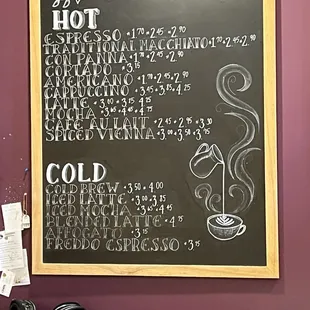 HOT
ESPRESSO •1.70 •2.45 •2.90
TRADITIONAL MACCHIATO •1.90 •2.45 •2.90
CON PANNA •1.70 •2.45 •2.90
CORTADO •3.15
AMERICANO •1.70 •2.45 •2.90
CAPPUCCINO •3.45 •3.85 •4.25
LATTE •3.00 •3.75 •4.15
MOCHA •3.65 •4.05 •4.45
CAFE AU LAIT •2.45 •2.95 •3.30
SPICED VIENNA •3.00 •3.50 •3.75
COLD
COLD BREW •3.50 •4.00
ICED LATTE •3.00 •3.85
ICED MOCHA •3.65 •4.45
BLENDED LATTE •4.75
AFFOGATO •3.15
FREDDO ESPRESSO •3.15